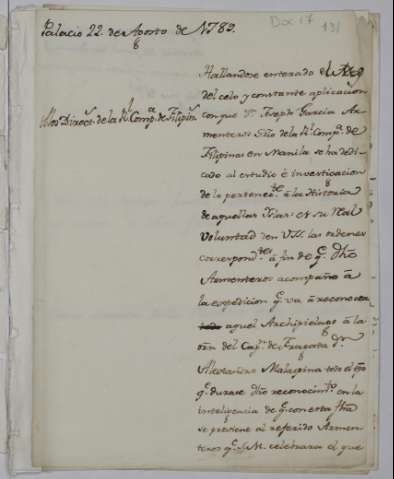 Palacio 22. de Agosto de 1789.
Doc 17
A los Direc.s de la Rl. Comp.a de Filip.s
Hallandose enterado el Rey
del celo y constante aplicacion
con que Dn. Joseph Garcia Ar-
menteros Srio de la Rl. Comp.a de
Filipinas en Manila se ha dedi-
cado al estudio è investigacion
de lo pertenec.te à la Historia
de aquellas Yslas es su Real
Voluntad den VSS. las ordenes
correspond.tes à fin de q.e dho
Armenteros acompañe à
la expedicion q.e va à reconocer
todo aquel Archipielago à la
orn del Cap.n de Fragata Dn.
Alexandro Malaspina todo el tpo
q.e durare dho reconocim.to en la
inteligencia de q.e con esta fha
se previene al referido Armen-
teros q.e S.M. celebrara el que